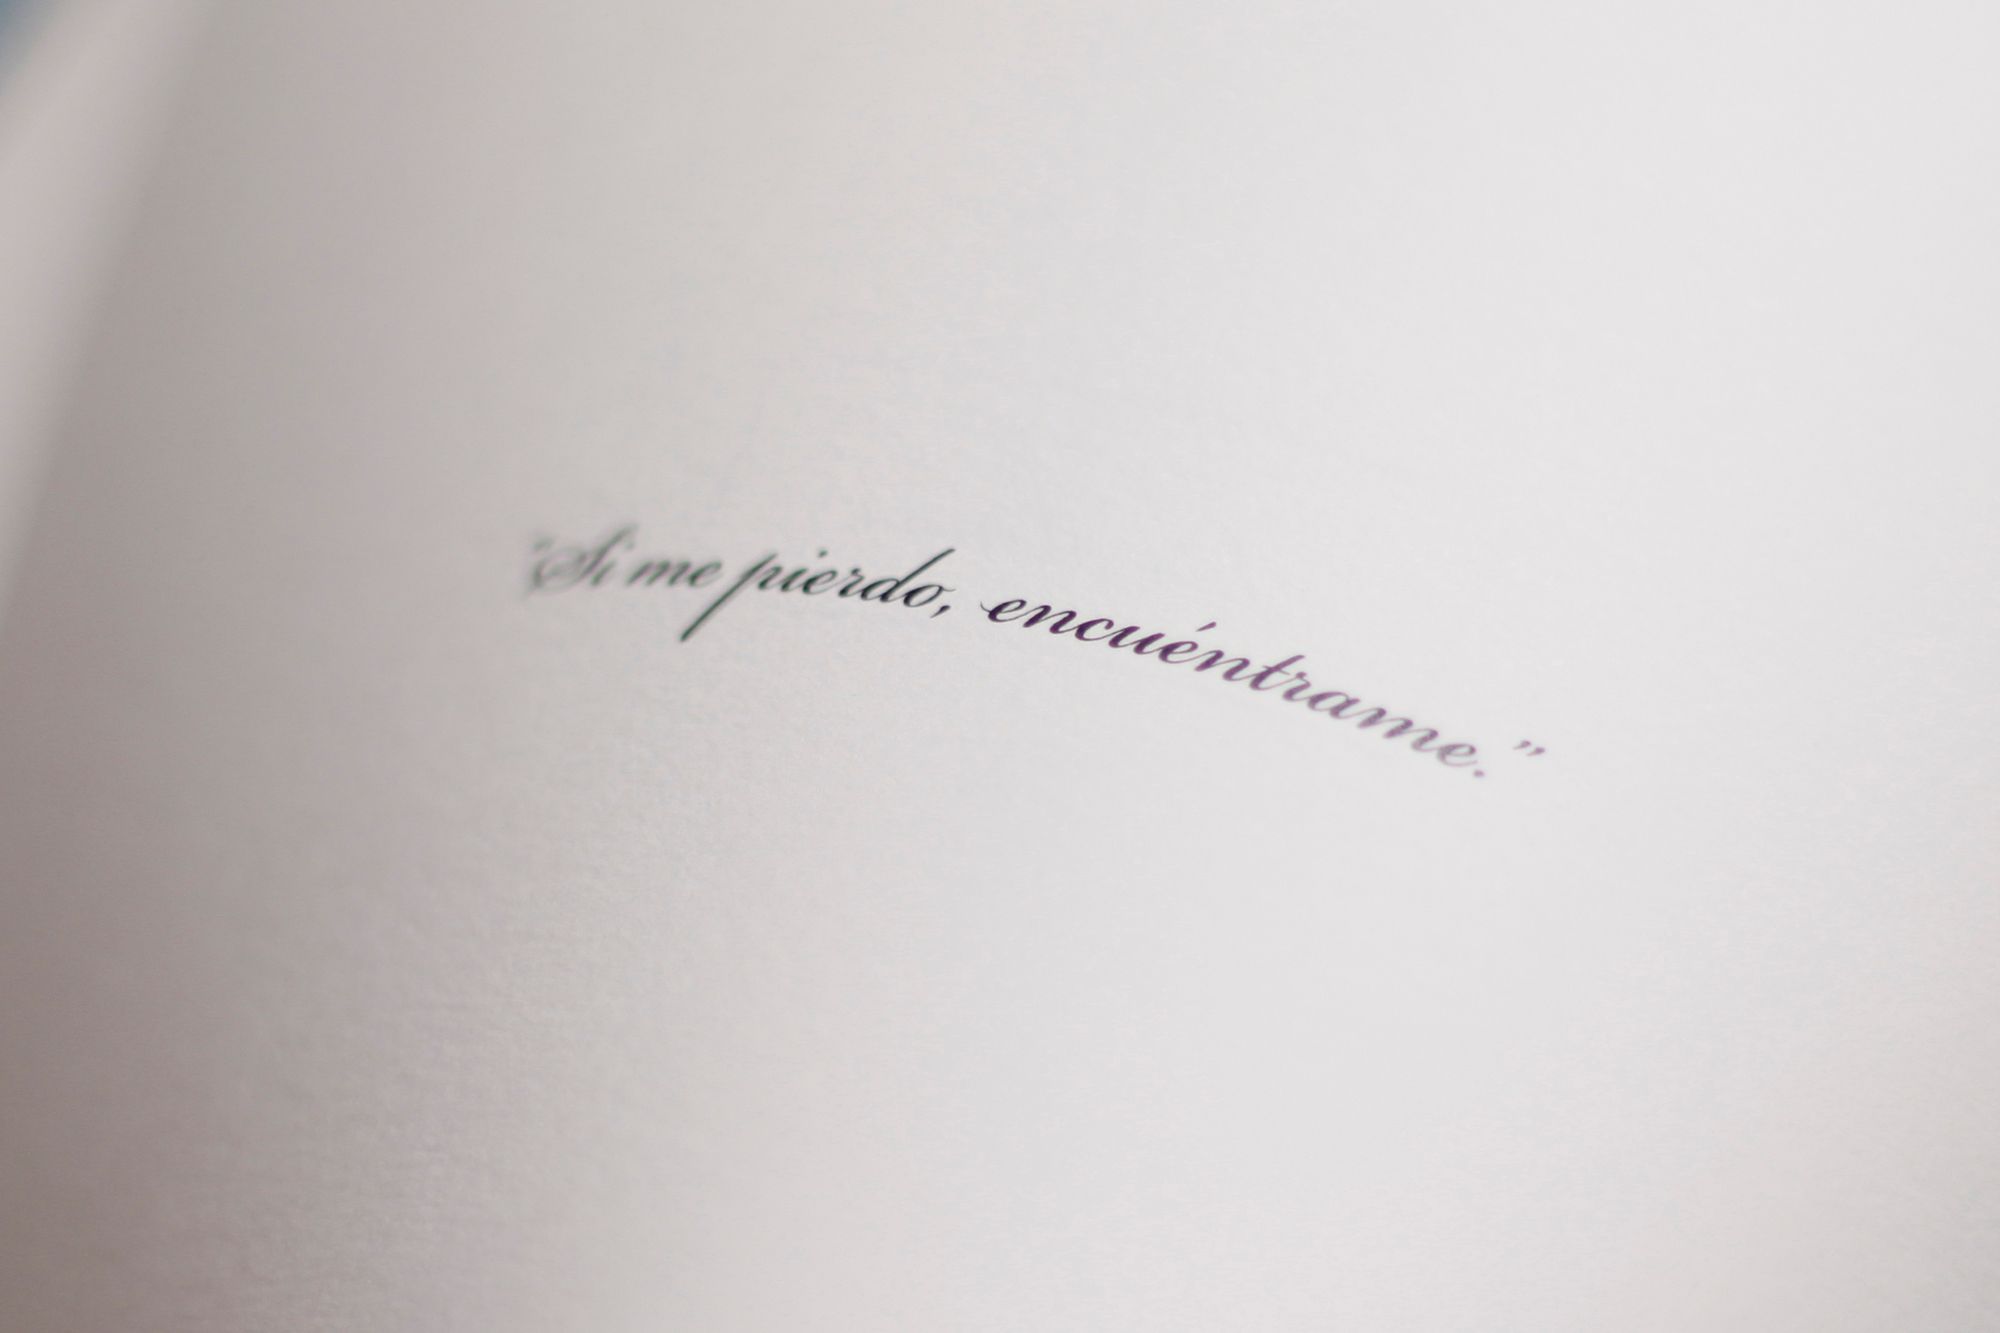 "Si me pierdo, encuéntrame."